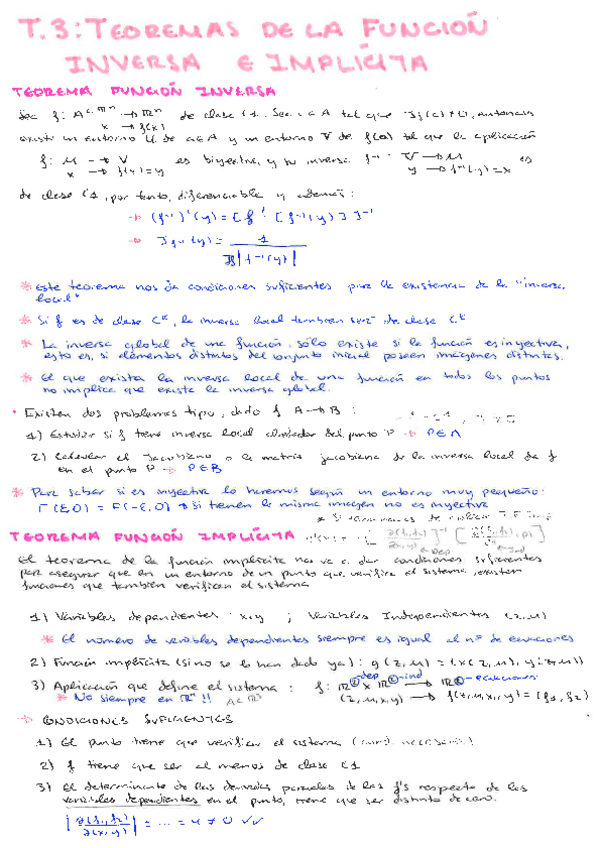 T.3: TEOREMAS DE LA FUNCIÓN
INVERSA E IMPLÍCITA
TEOREMA FUNCIÓN INVERSA
Sea f: A⊂ℝⁿ → ℝⁿ de clase C1. Sea a ∈ A tal que Jf(a) ≠ 0, entonces
x → f(x)
existe un entorno U de a∈A y un entorno V de f(a) tal que la aplicación
f: U → V es biyectiva, y su inversa f⁻¹ V → U es
x → f(x)=y y → f⁻¹(y)=x
de clase C1, por tanto, diferenciable y además:
→ (f⁻¹)'(y) = [f' [f⁻¹(y)]]⁻¹
→ Jf⁻¹(y) = 1
Jf|f⁻¹(y)|
* Este teorema nos da condiciones suficientes para la existencia de la "inversa
local"
* Si f es de clase Cᴷ, la inversa local también será de clase Cᴷ
* La inversa global de una función, sólo existe si la función es inyectiva,
esto es, si elementos distintos del conjunto inicial poseen imágenes distintas.
* El que exista la inversa local de una función en todos los puntos
no implica que exista la inversa global.
• Existen dos problemas tipo, dado f A→B :
1) Estudiar si f tiene inversa local alrededor del punto P → P∈A
2) Calcular el Jacobiano o la matriz jacobiana de la inversa local de f
en el punto P → P∈B
* Para saber si es inyectiva lo haremos según un entorno muy pequeño:
F(ε,0) = F(-ε,0) → si tienen la misma imagen no es inyectiva
TEOREMA FUNCIÓN IMPLÍCITA
El teorema de la función implícita nos va a dar condiciones suficientes
para asegurar que en un entorno de un punto que verifica el sistema, existen
funciones que también verifican el sistema
1) Variables dependientes x,y ; Variables Independientes (z,u)
* El número de variables dependientes siempre es igual al nº de ecuaciones
2) Función implícita (si no se la han dado ya): g(z,u) = (x(z,u), y(z,u))
3) Aplicación que define el sistema : f: ℝ② dep x ℝ② ind → ℝ② ecuaciones
* No siempre en ℝⁿ!! (z,u,x,y) → f(z,u,x,y) = (f1,f2)
→ CONDICIONES SUFICIENTES
1) El punto tiene que verificar el sistema (cond. necesaria)
2) f tiene que ser al menos de clase C1
3) El determinante de las derivadas parciales de las f's respecto de las
variables dependientes en el punto, tiene que ser distinto de cero.
|∂(f1,f2)/∂(x,y)| = ... = 4 ≠ 0 ✓✓